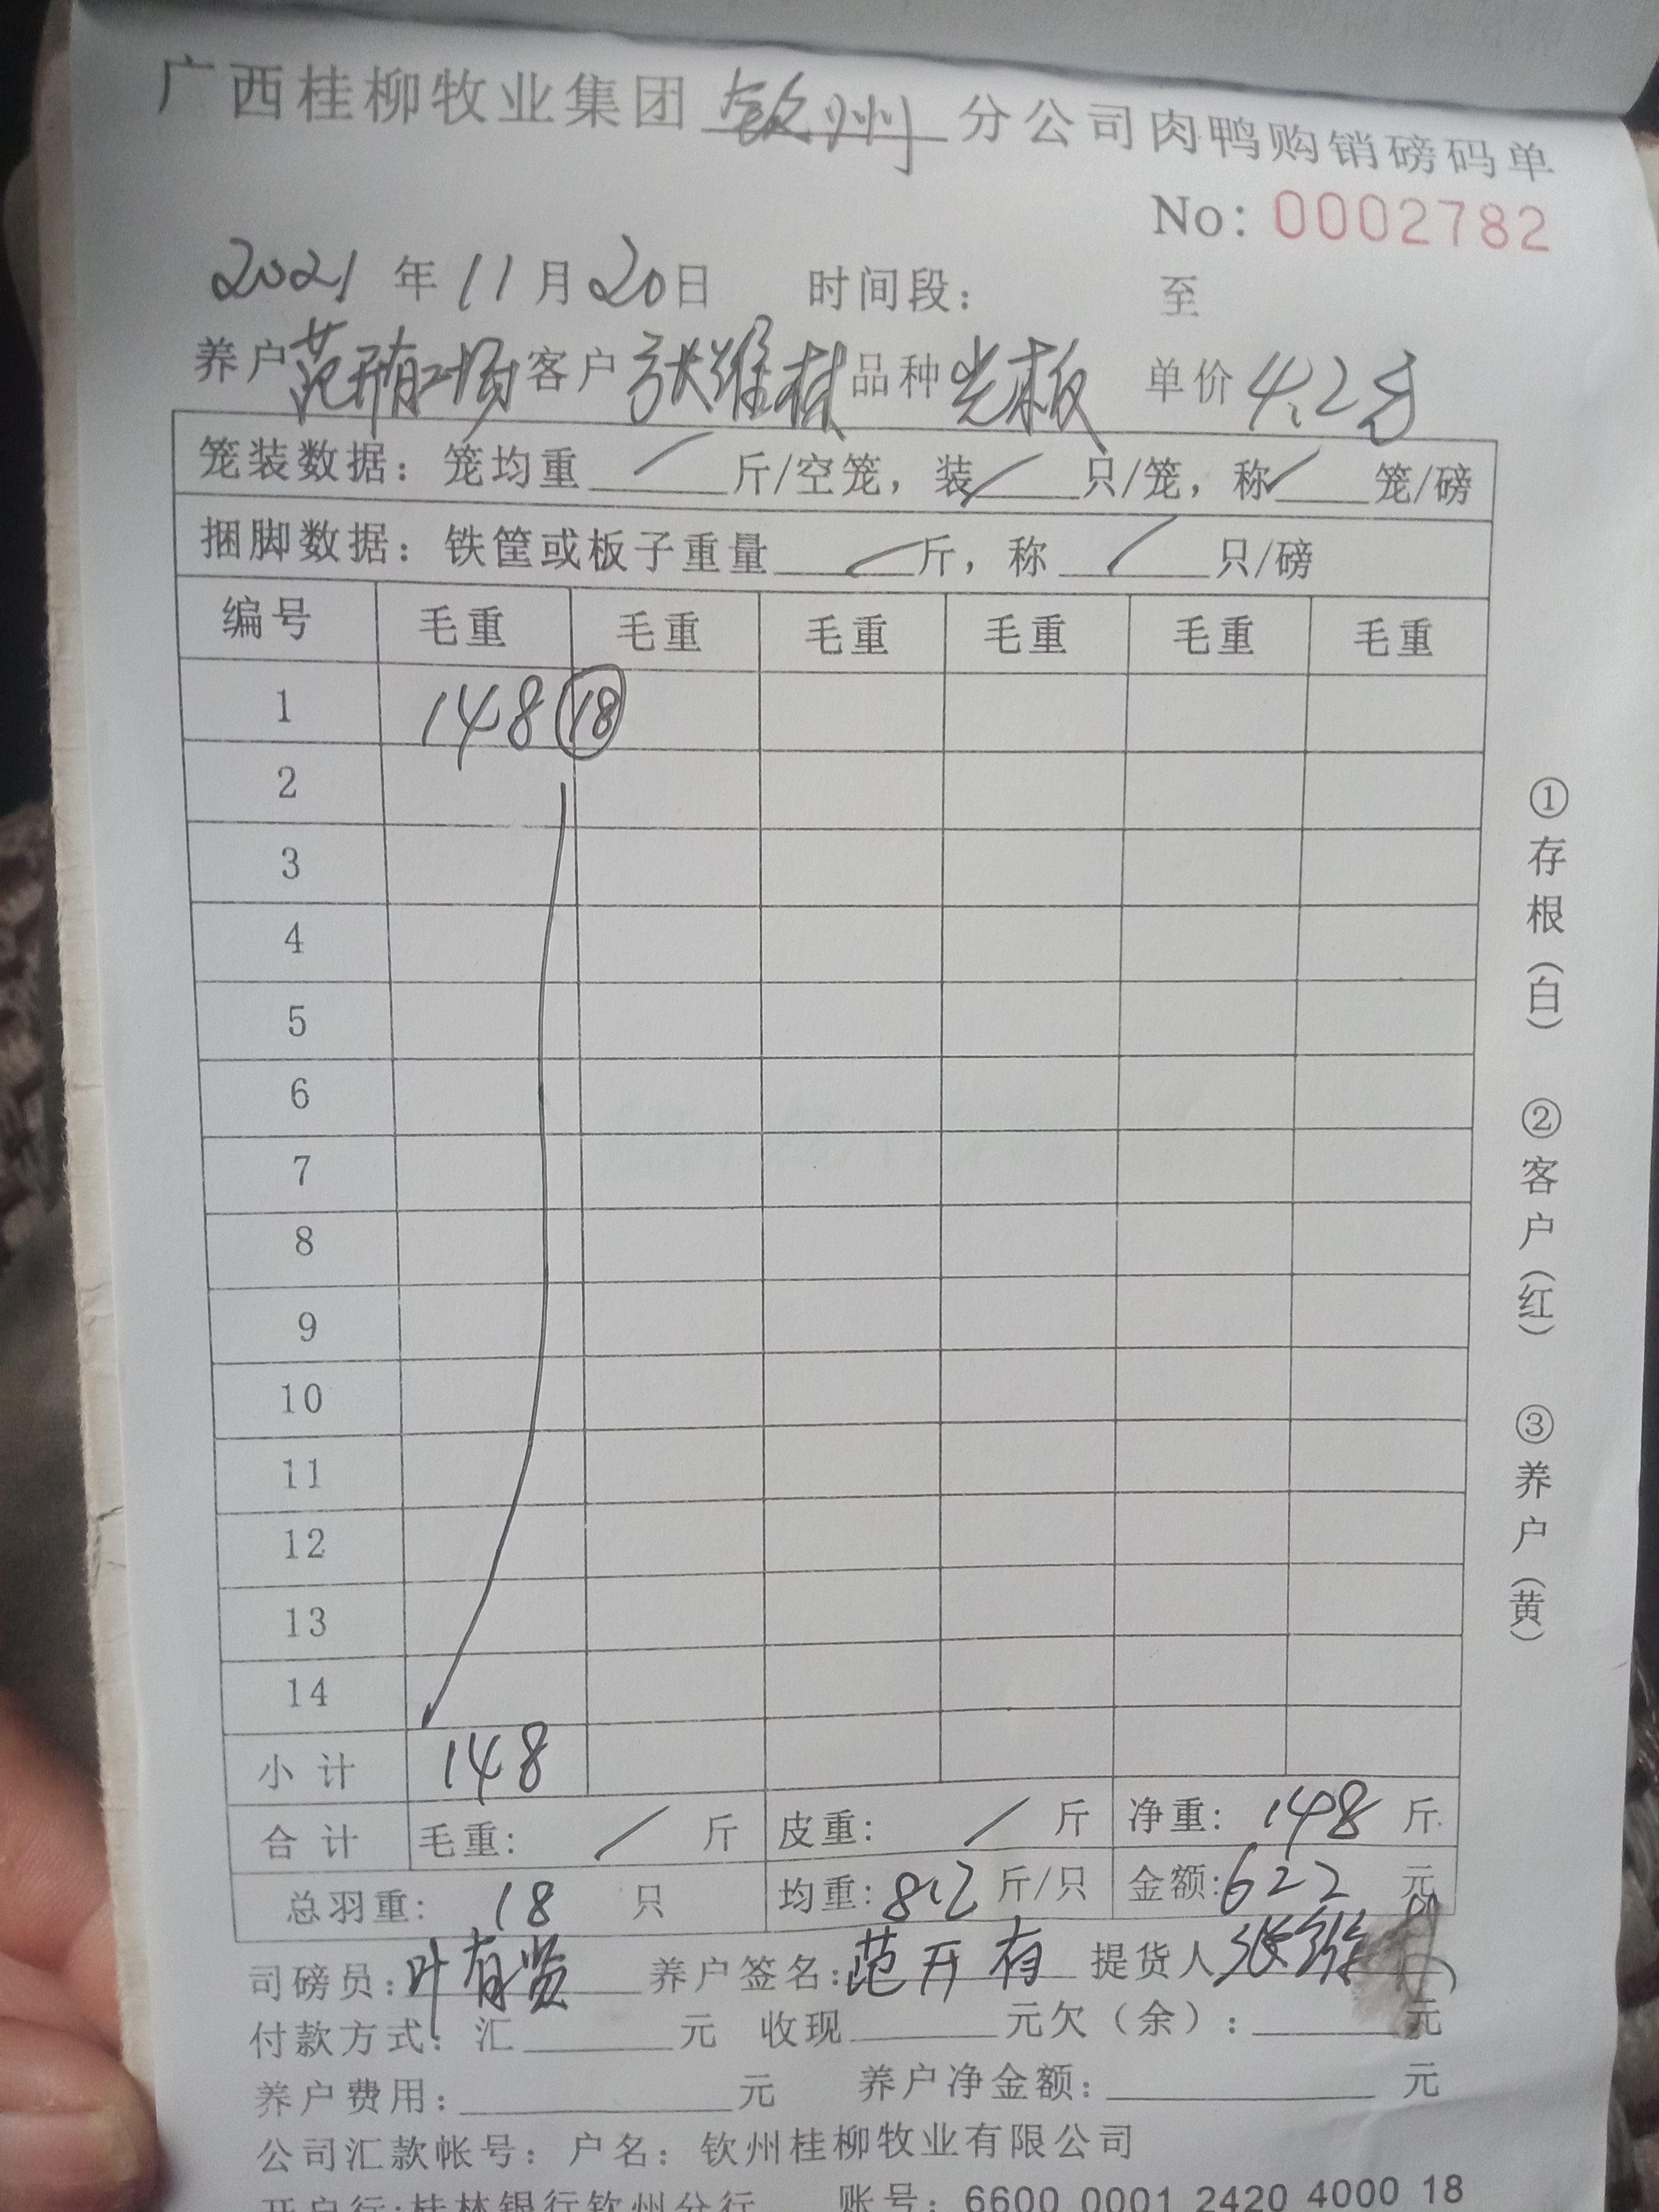 广西桂柳牧业集团 钦州 分公司肉鸭购销磅码单
No: 0002782
2021 年 11 月 20 日 时间段: 至
养户 范开有二场 客户 张维 品种 光板 单价 4.2
笼装数据: 笼均重 / 斤/空笼, 装 / 只/笼, 称 / 笼/磅
捆脚数据: 铁筐或板子重量 / 斤, 称 / 只/磅
编号 毛重 毛重 毛重 毛重 毛重 毛重
1 148 18
2
3
4
5
6
7
8
9
10
11
12
13
14
小计 148
合计 毛重: / 斤 皮重: / 斤 净重: 148 斤
总羽重: 18 只 均重: 8.2 斤/只 金额: 622 元
司磅员: 叶有 养户签名: 范开有 提货人 张维
付款方式: 汇 元 收现 元欠(余): 元
养户费用: 元 养户净金额: 元
公司汇款帐号: 户名: 钦州桂柳牧业有限公司
开户行:桂林银行钦州分行 账号: 6600 0001 2420 4000 18
①存根(白) ②客户(红) ③养户(黄)